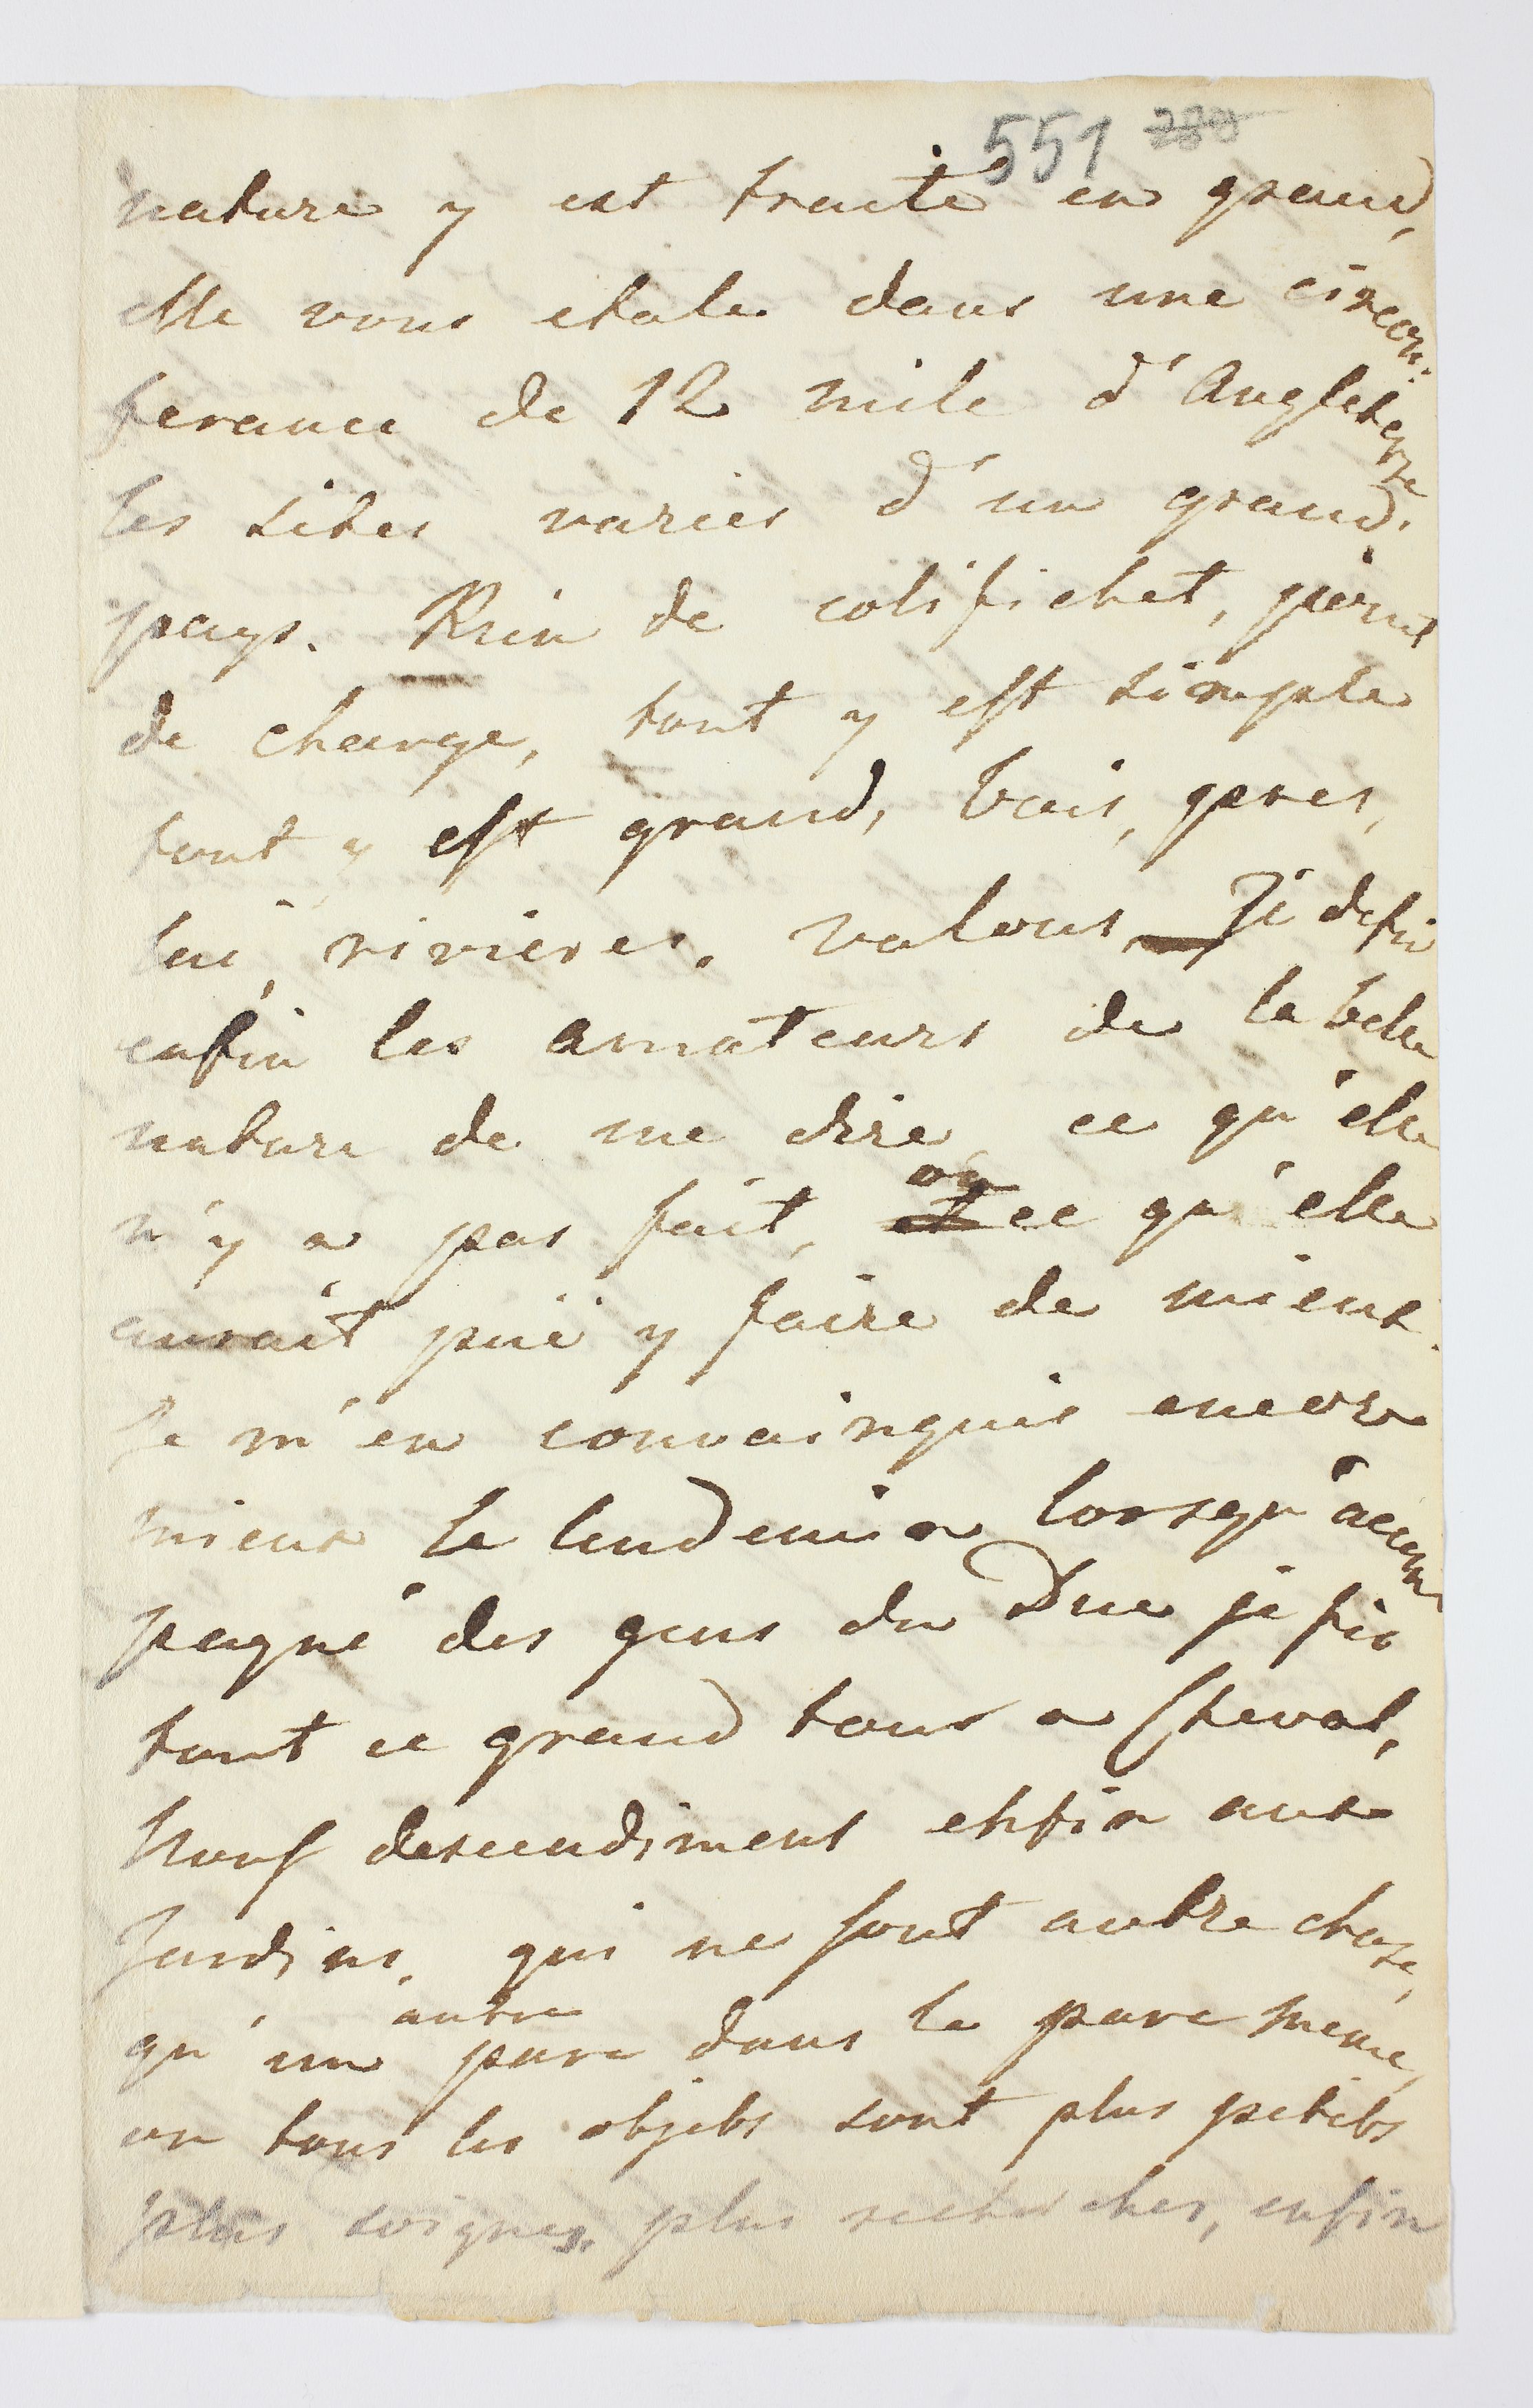 551 280
nature y est traité en grand,
elle vous etale dans une circon:
ferance de 12 mile d'Angleterre
les sites varies d'un grand
pays. Rien de colifichet, point
de charge, tout y est simple
tout y est grand, bois, pres,
lac, rivieres. valons, Je defie
enfin les amateurs de la belle
nature de me dire ce qu'elle
n'y a pas fait, et ou ce qu'elle
aurait pue y faire de mieux.
Je m'en convainquis encore
mieux le lendemain lorsqu'accom
pagné des gens du Duc je fis
tout ce grand tour a Cheval,
Nous descendimens enfin aux
Jardins, qui ne sont autre chose,
qu'un autre parc dans le parc meme,
ou tous les objets sont plus petits
plus soignes, plus recherches, enfin